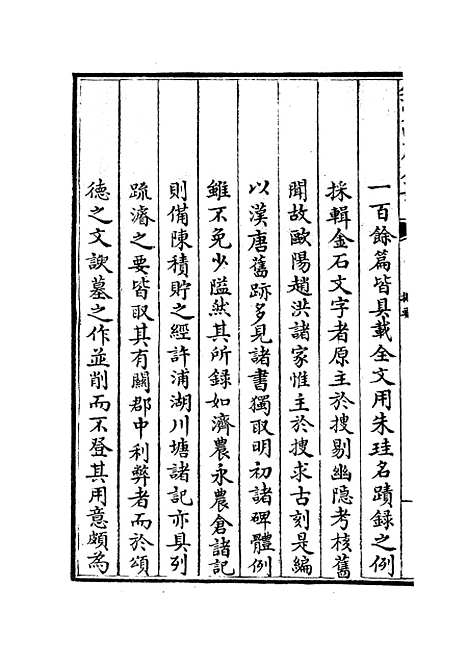 一百餘篇皆具載全文用朱珪名蹟錄之例
採輯金石文字者原主於搜剔幽隠考核舊
聞故歐陽趙洪諸家惟主於搜求古刻是編
以漢唐舊跡多見諸書獨取明初諸碑體例
雖不免少隘然其所録如濟農永農倉諸記
則備陳積貯之經許浦湖川塘諸記亦具列
疏濬之要皆取其有闗郡中利弊者而於頌
徳之文諛墓之作並削而不登其用意頗為